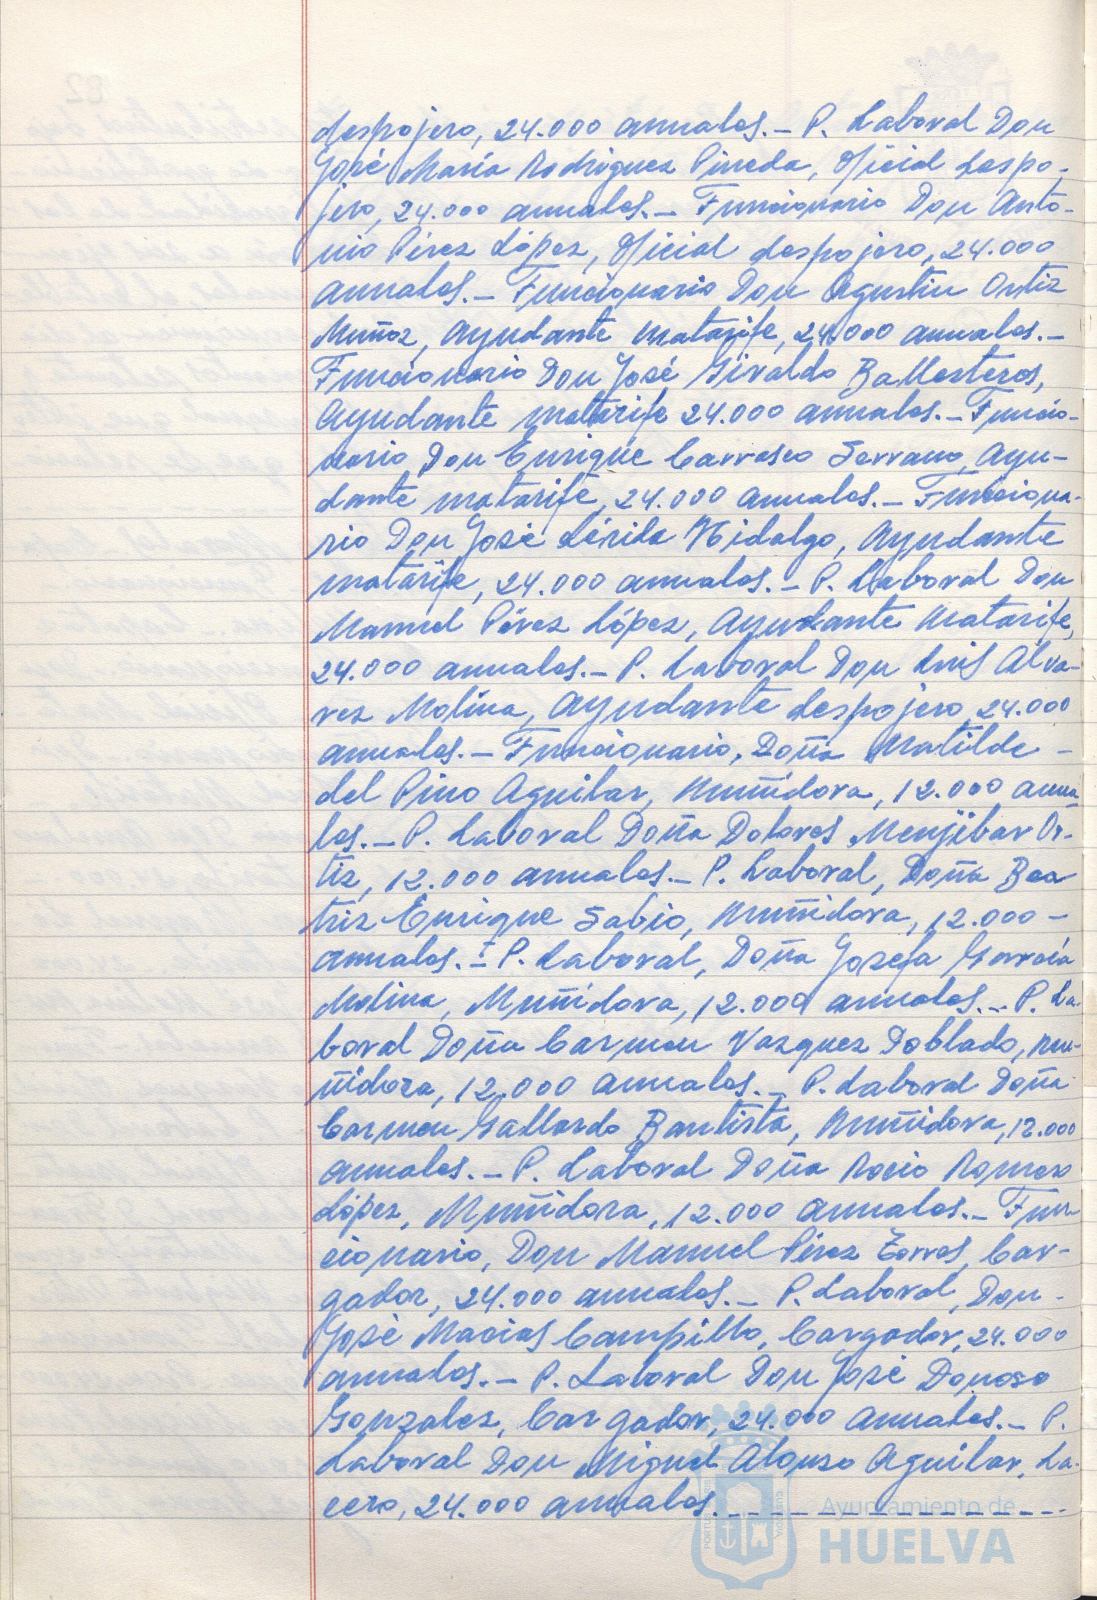 despojero, 24.000 anuales.- P. Laboral Don
José María Rodríguez Pineda, Oficial despo-
jero, 24.000 anuales.- Funcionario Don Anto-
nio Pérez López, Oficial despojero, 24.000
anuales.- Funcionario Don Agustín Ortiz
Muñoz, Ayudante matarife, 24.000 anuales.-
Funcionario Don José Giraldo Ballesteros,
Ayudante matarife 24.000 anuales.- Funcio-
nario Don Enrique Carrasco Serrano, Ayu-
dante matarife, 24.000 anuales.- Funciona-
rio Don José Lérida Hidalgo, Ayudante
matarife, 24.000 anuales.- P. Laboral Don
Manuel Pérez López, Ayudante Matarife,
24.000 anuales.- P. Laboral Don Luis Alva-
rez Molina, Ayudante despojero, 24.000
anuales.- Funcionario, Doña Matilde -
del Pino Aguilar, Muñidora, 12.000 anua-
les.- P. Laboral Doña Dolores Menjibar Or-
tiz, 12.000 anuales.- P. Laboral, Doña Bea
triz Enrique Sabio, Muñidora, 12.000 -
anuales.- P. Laboral, Doña Josefa García
Molina, Muñidora, 12.000 anuales.- P. La-
boral Doña Carmen Vazquez Doblado, Mu-
ñidora, 12.000 anuales.- P. Laboral Doña
Carmen Gallardo Bautista, Muñidora, 12.000
anuales.- P. Laboral Doña Rocio Romero
López, Muñidora, 12.000 anuales.- Fun-
cionario, Don Manuel Pérez Torres, Car-
gador, 24.000 anuales.- P. Laboral, Don -
José Macias Campillo, Cargador, 24.000
anuales.- P. Laboral Don José Donoso
Gonzalez, Cargador, 24.000 anuales.- P.
Laboral Don Miguel Alonso Aguilar, La-
cero, 24.000 anuales.- - - - - - - - - - - -
Ayuntamiento de
HUELVA